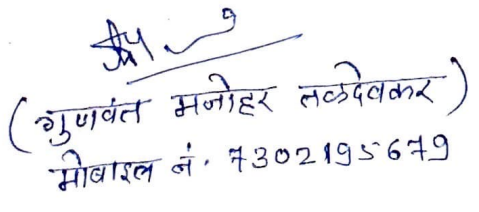 (गुणवंत मनोहर तळदेवकर)
मोबाइल नं. 7302195679